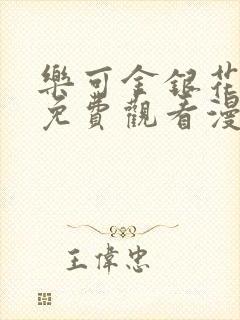 樂可金銀花
免費觀看漫
王偉忠